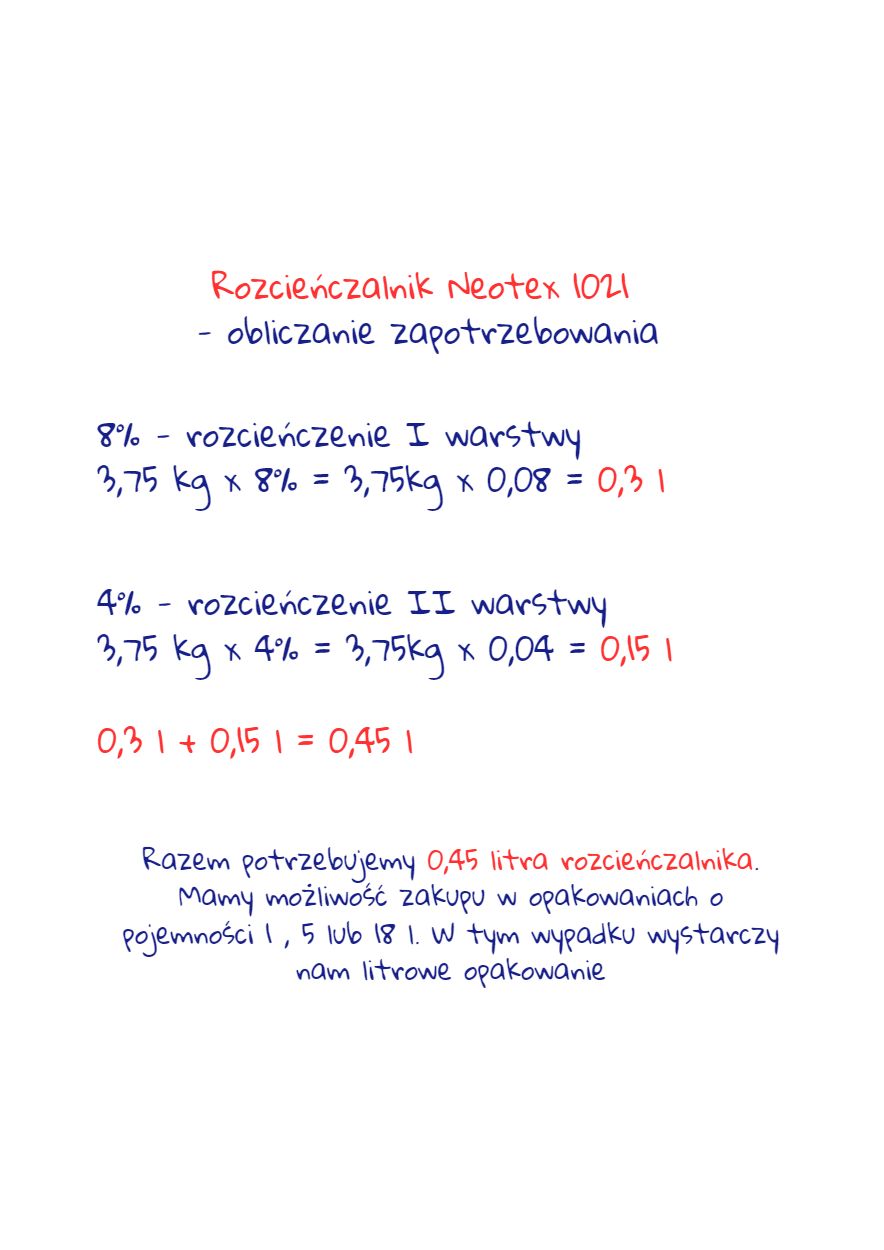 Rozcieńczalnik Neotex 1021
- obliczanie zapotrzebowania
8% - rozcieńczenie I warstwy
3,75 kg x 8% = 3,75kg x 0,08 = 0,3 l
4% - rozcieńczenie II warstwy
3,75 kg x 4% = 3,75kg x 0,04 = 0,15 l
0,3 l + 0,15 l = 0,45 l
Razem potrzebujemy 0,45 litra rozcieńczalnika.
Mamy możliwość zakupu w opakowaniach o
pojemności 1 , 5 lub 18 l. W tym wypadku wystarczy
nam litrowe opakowanie